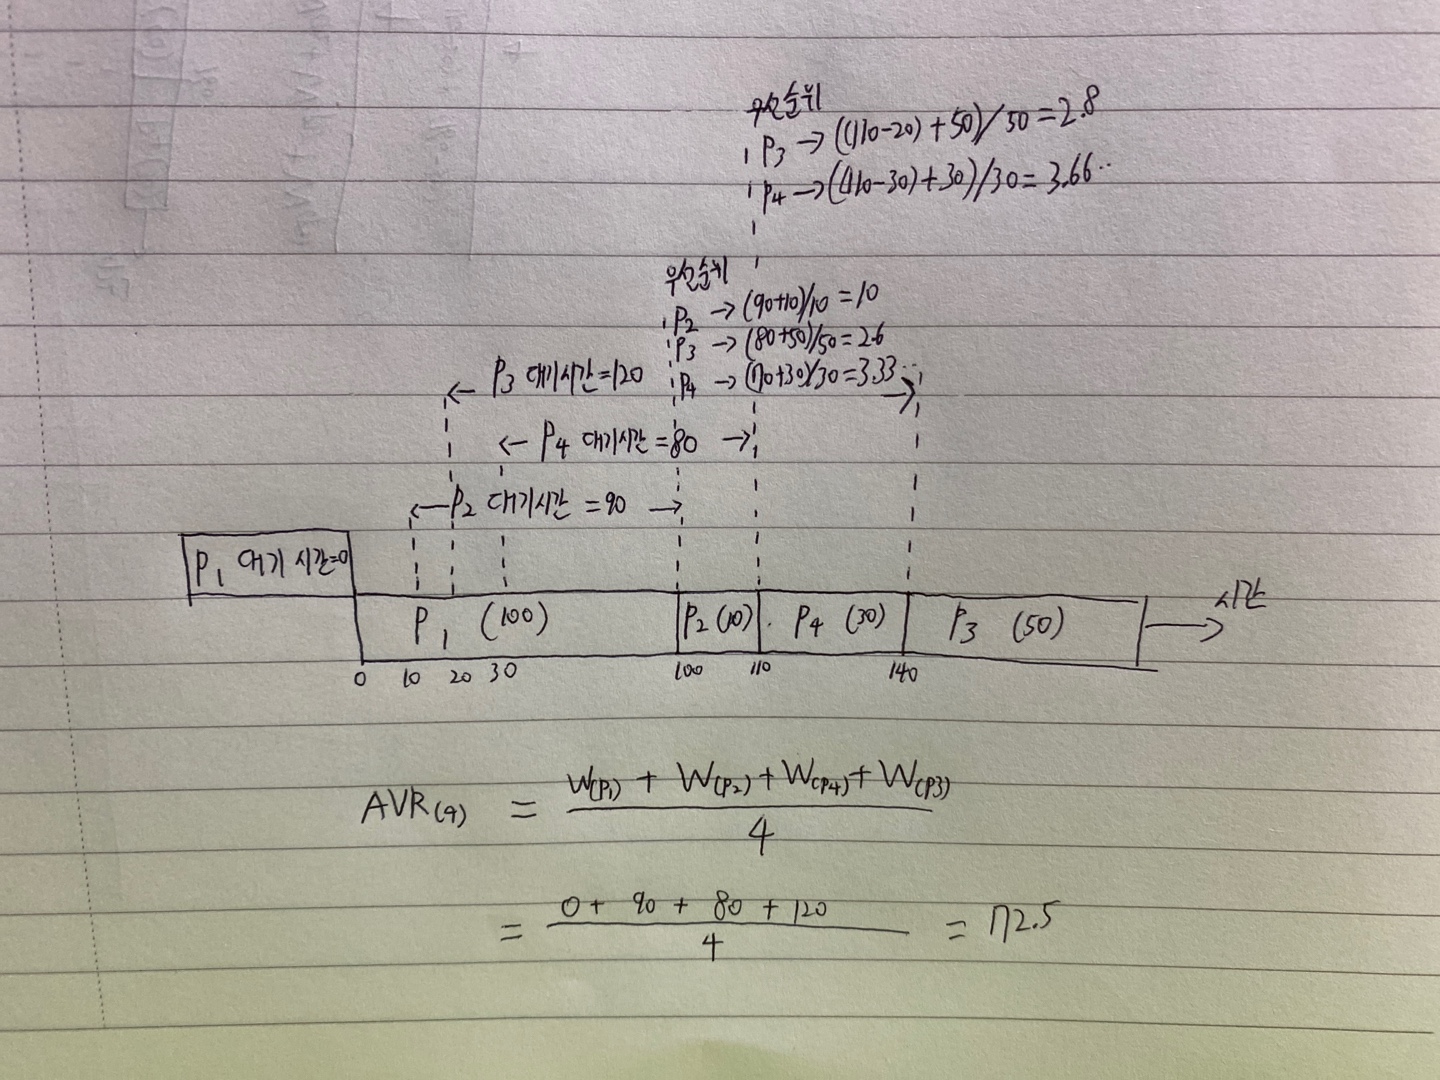 우선순위
P3 → ((110-20)+50)/50=2.8
P4 → ((110-30)+30)/30=3.66..
우선순위
P2 → (90+10)/10=10
P3 → (80+50)/50=2.6
P4 → (70+30)/30=3.33..
← P3 대기시간=120 →
← P4 대기시간=80 →
← P2 대기시간=90 →
P1 대기시간=0
P1 (100) P2 (10) P4 (30) P3 (50) → 시간
0 10 20 30 100 110 140
AVR(4) = W(P1) + W(P2) + W(P4) + W(P3)
4
= 0 + 90 + 80 + 120 = 72.5
4